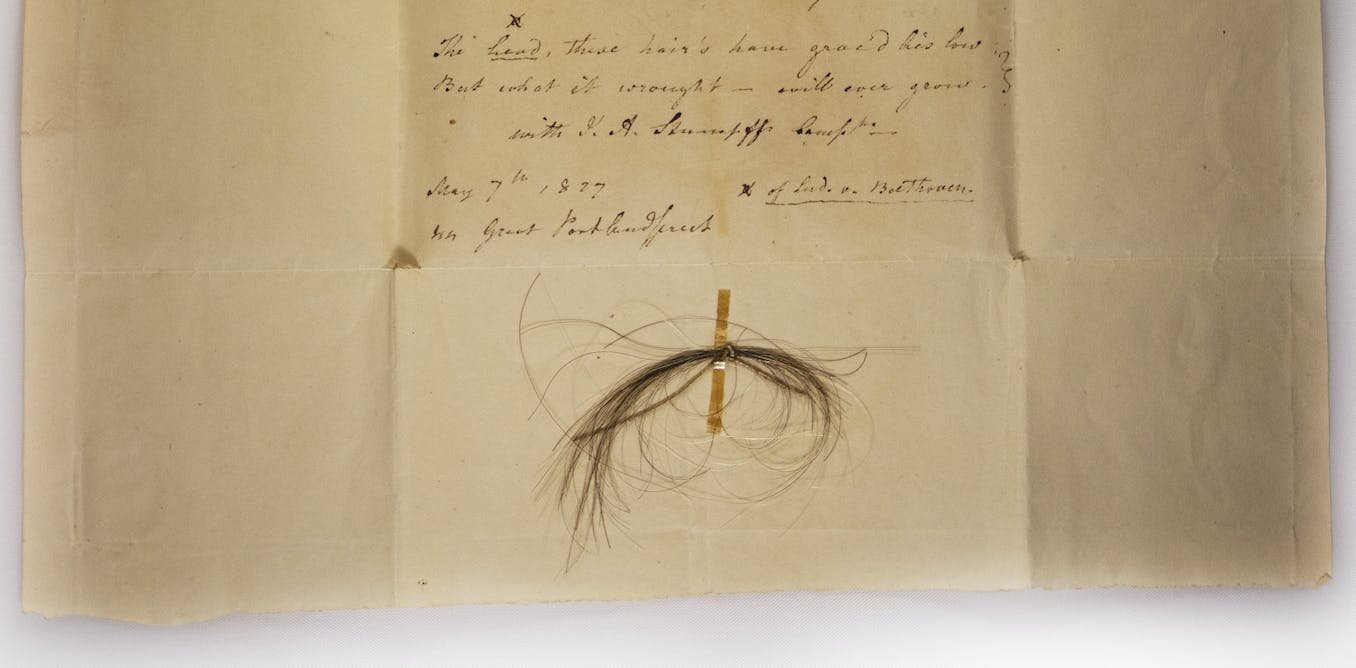 The head, these hair's have grac'd his low:
But what it wrought — will ever grow.
with J. A. Stumpff's Compts.
May 7th, 1827
* of Lud. v. Beethoven.
44 Great Portlandstreet